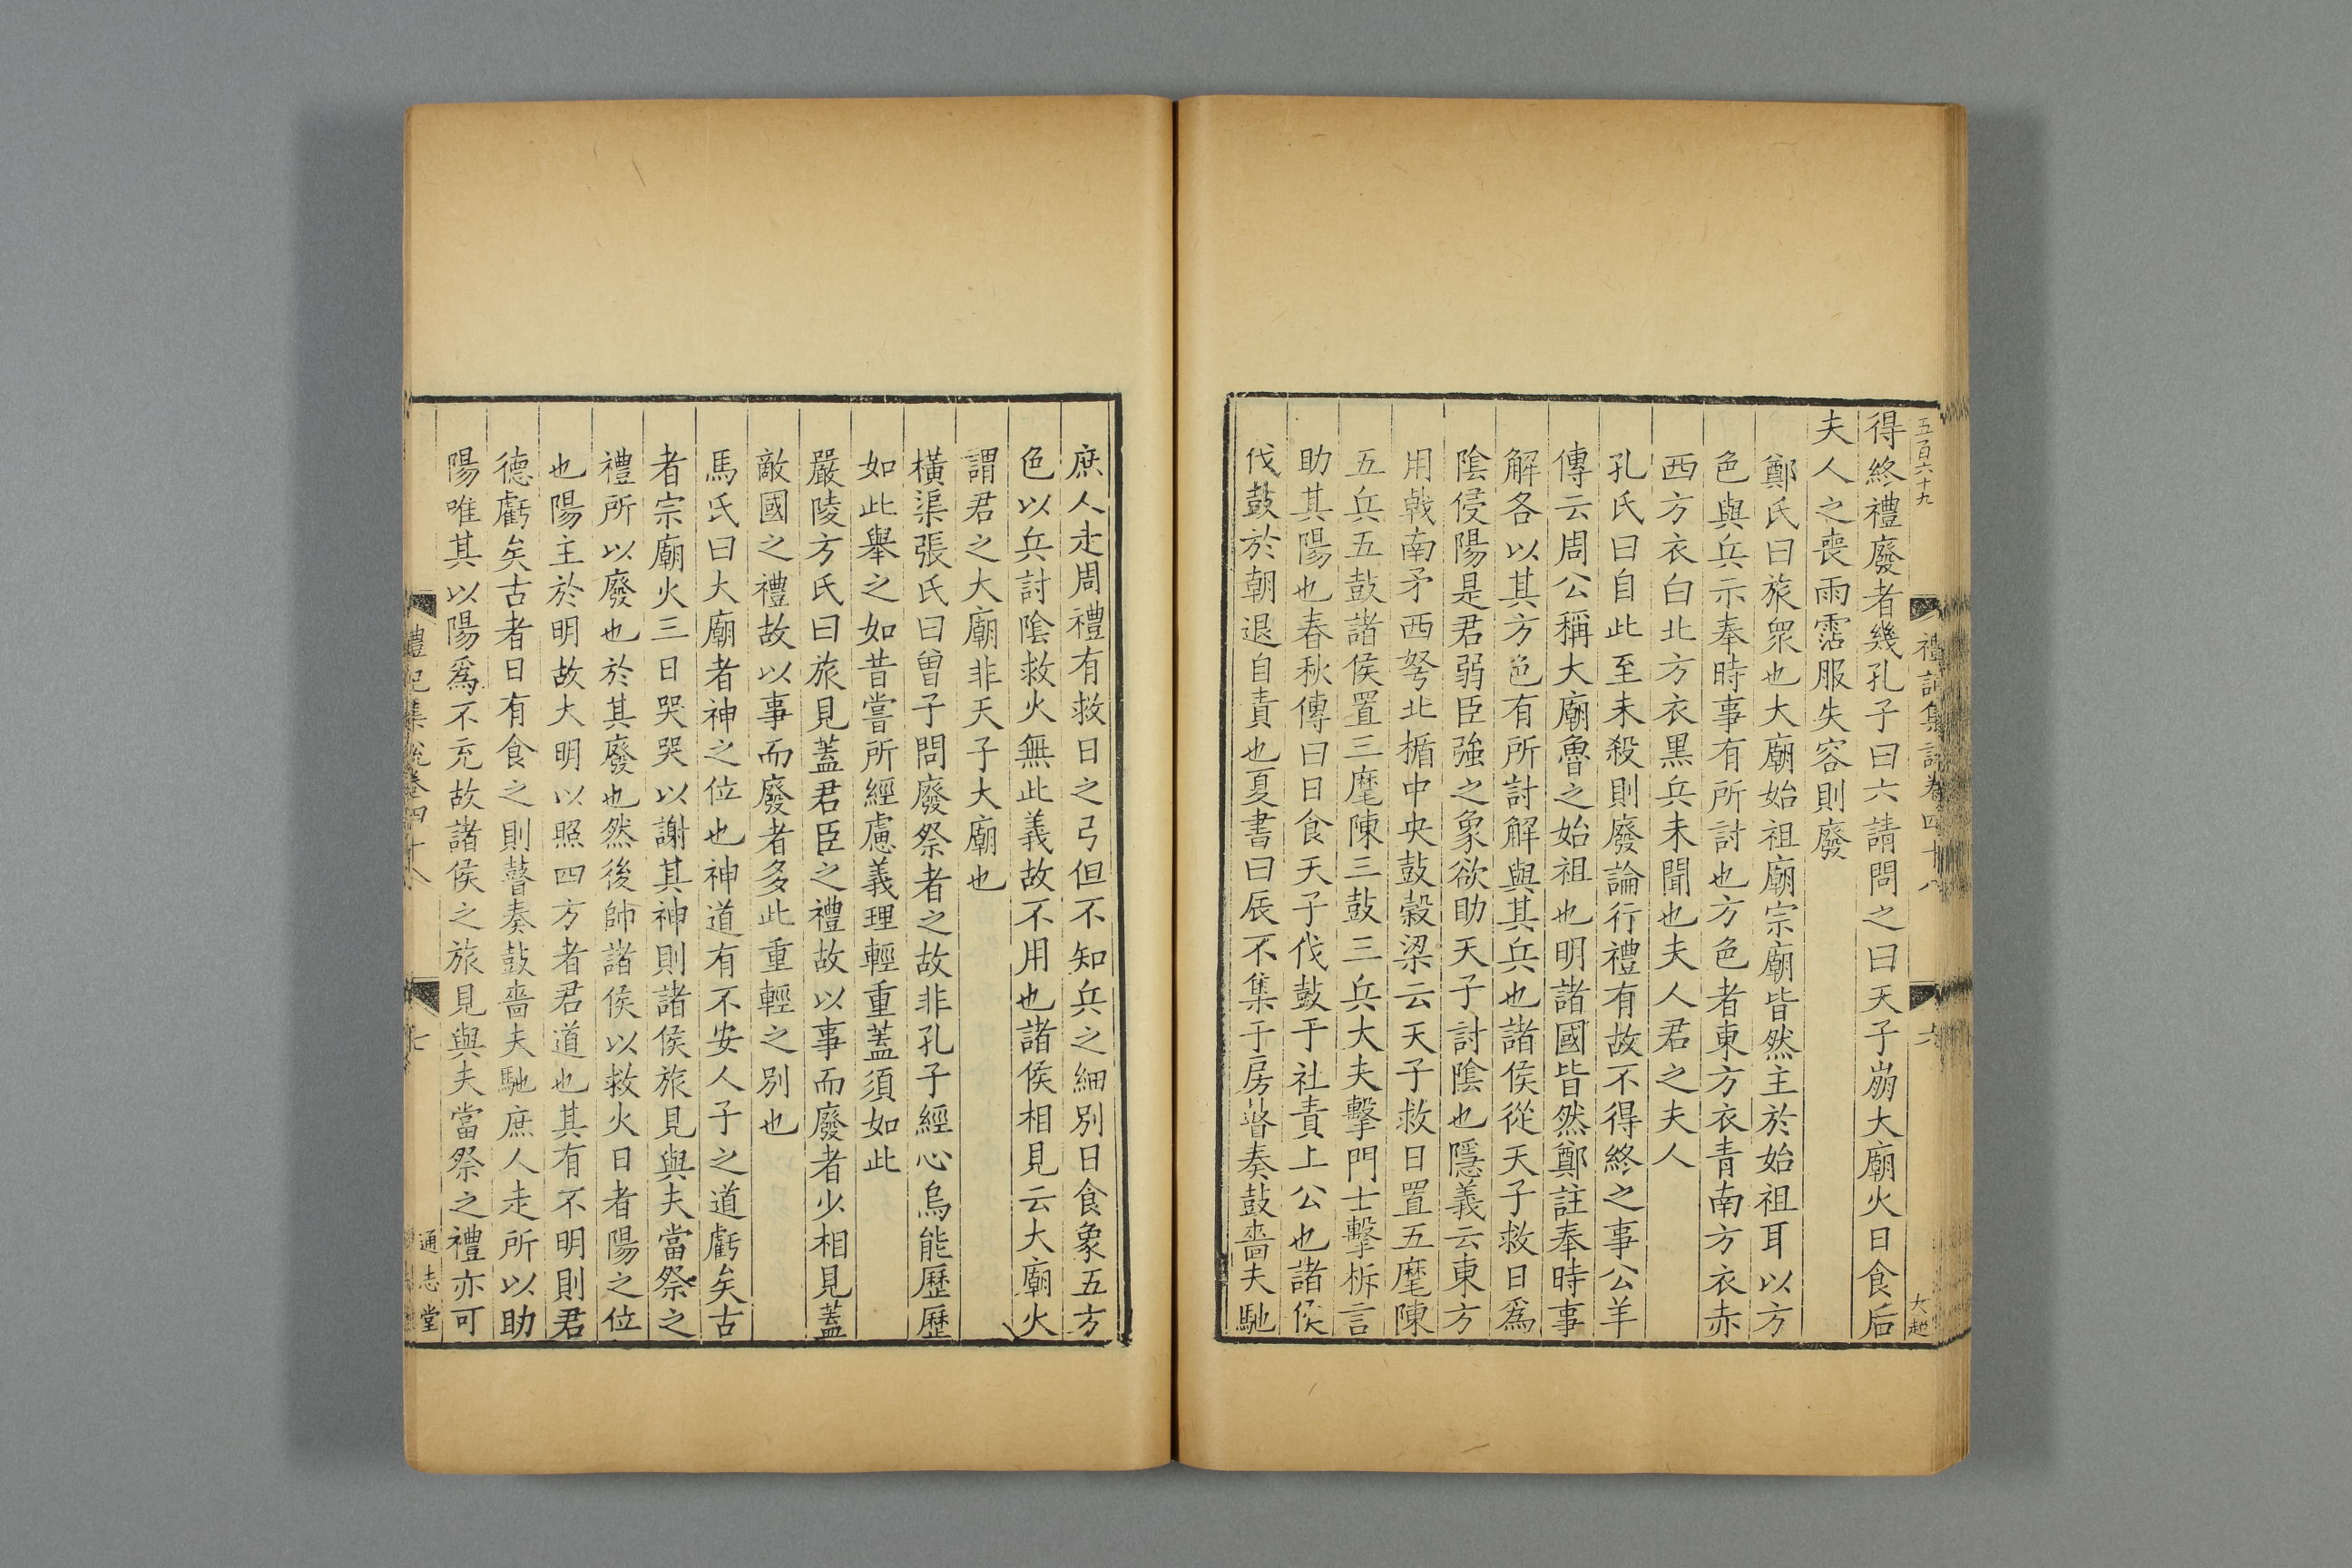 五百六十九
禮記集說卷四十八
六
大起
得終禮廢者幾孔子曰六請問之曰天子崩大廟火日食后
夫人之喪雨霑服失容則廢
鄭氏曰旅衆也大廟始祖廟宗廟皆然主於始祖耳以方
色與兵示奉時事有所討也方色者東方衣青南方衣赤
西方衣白北方衣黑兵未聞也夫人君之夫人
孔氏曰自此至未殺則廢論行禮有故不得終之事公羊
傳云周公稱大廟魯之始祖也明諸國皆然鄭註奉時事
解各以其方色有所討解與其兵也諸侯從天子救日爲
陰侵陽是君弱臣強之象欲助天子討陰也隱義云東方
用戟南矛西弩北楯中央鼓榖梁云天子救日置五麾陳
五兵五鼓諸侯置三麾陳三鼓三兵大夫擊門士擊柝言
助其陽也春秋傳曰日食天子伐鼓于社責上公也諸侯
伐鼓於朝退自責也夏書曰辰不集于房瞽奏鼓嗇夫馳
庶人走周禮有救日之弓但不知兵之細別日食象五方
色以兵討陰救火無此義故不用也諸侯相見云大廟火
謂君之大廟非天子大廟也
橫渠張氏曰曾子問廢祭者之故非孔子經心烏能歷歷
如此舉之如昔嘗所經慮義理輕重蓋須如此
嚴陵方氏曰旅見蓋君臣之禮故以事而廢者少相見蓋
敵國之禮故以事而廢者多此重輕之別也
馬氏曰大廟者神之位也神道有不安人子之道虧矣古
者宗廟火三日哭哭以謝其神則諸侯旅見與夫當祭之
禮所以廢也於其廢也然後帥諸侯以救火日者陽之位
也陽主於明故大明以照四方者君道也其有不明則君
德虧矣古者日有食之則瞽奏鼓嗇夫馳庶人走所以助
陽唯其以陽爲不充故諸侯之旅見與夫當祭之禮亦可
禮記集說卷四十八
七
通志堂